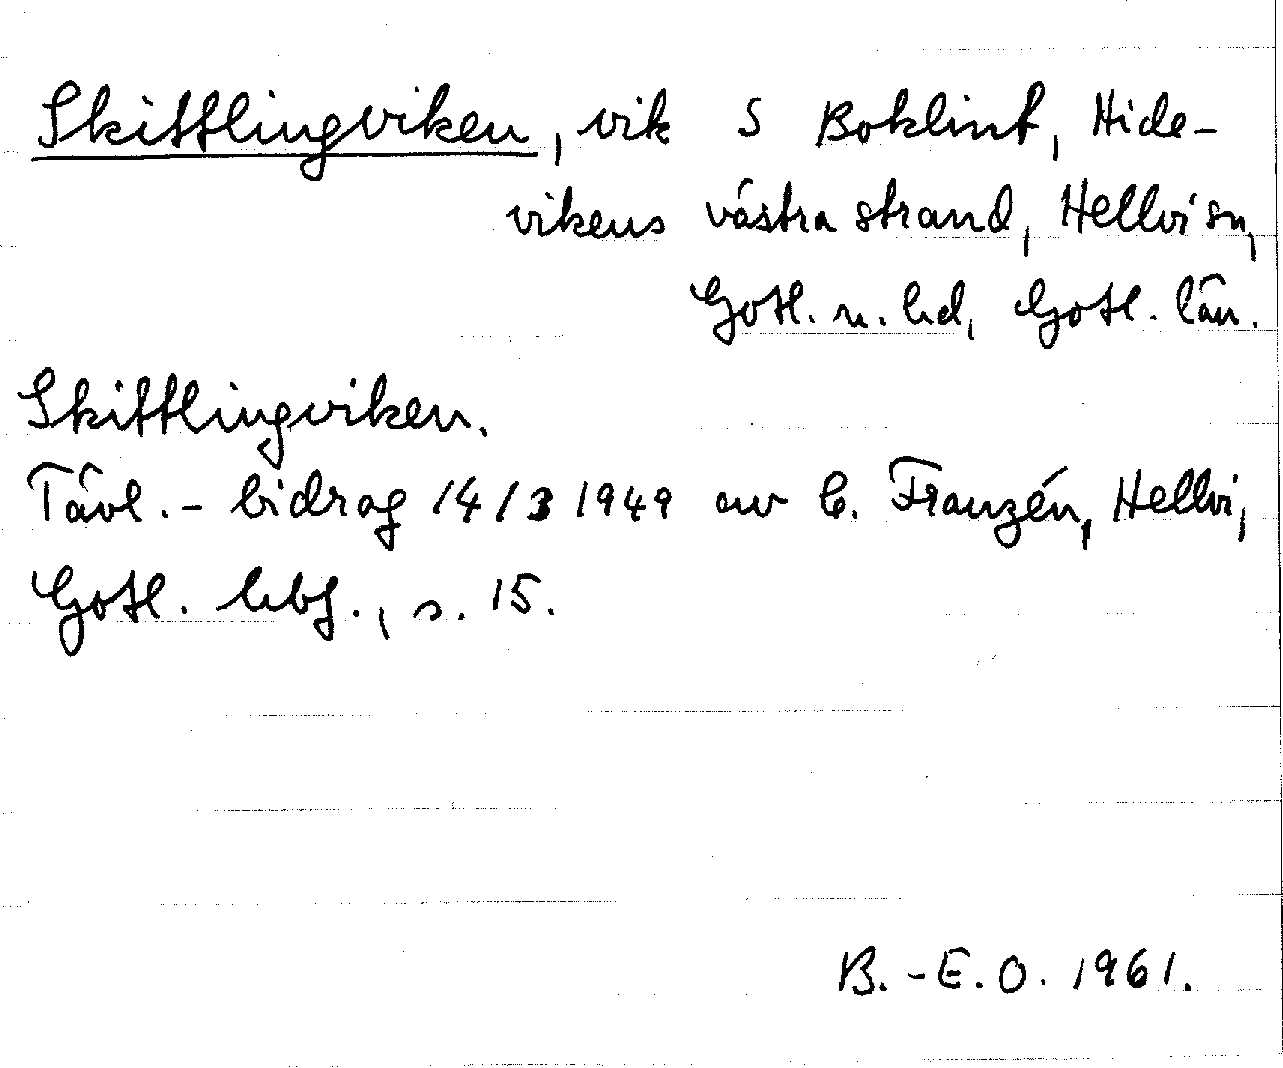 Skittlingviken, vik S Boklint, Hide-
vikens västra strand, Hellvi sn,
Gotl. n. hd, Gotl. län.
Skittlingviken.
Tävl.-bidrag 14/3 1949 av C. Franzén, Hellvi,
Gotl. hbf., s. 15.
B.-E.O. 1961.